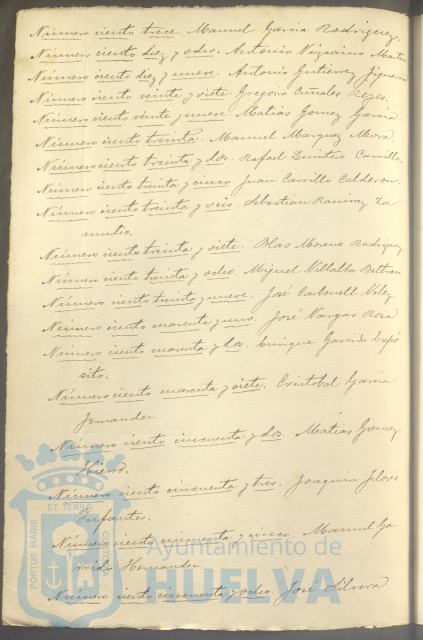 Número ciento trece. Manuel Garcia Rodriguez.
Número ciento diez y ocho. Antonio Vizcaino Martin
Número ciento diez y nueve. Antonio Gutierrez Figueroa
Número ciento veinte y siete. Gregorio Reyes.
Número ciento veinte y nueve. Matias Gomez Garcia.
Número ciento treinta. Manuel Marquez Mora.
Número ciento treinta y dos. Rafael Quintero Carrillo.
Número ciento treinta y cinco Juan Carrillo Calderon.
Número ciento treinta y seis. Sebastian Ramirez Za
mudio.
Número ciento treinta y siete. Blas Moreno Rodriguez
Número ciento treinta y ocho. Miguel Villalba Beltran
Número ciento treinta y nueve. José Velez.
Número ciento cuarenta y uno. José Vargas Rosa
Número ciento cuarenta y dos. Enrique Garrido Espó
sito.
Número ciento cuarenta y siete. Cristobal Garcia
Fernandez.
Número ciento cincuenta y dos. Matias Gomez
Número ciento cincuenta y tres. Joaquin Flores
Infantes.
Número ciento cincuenta y cinco. Manuel Ga
rrido Hernandez.
Número ciento cincuenta y ocho. José Silvera
PORTUS MARIS
ET TERRÆ
CUSTODIA
Ayuntamiento de
HUELVA